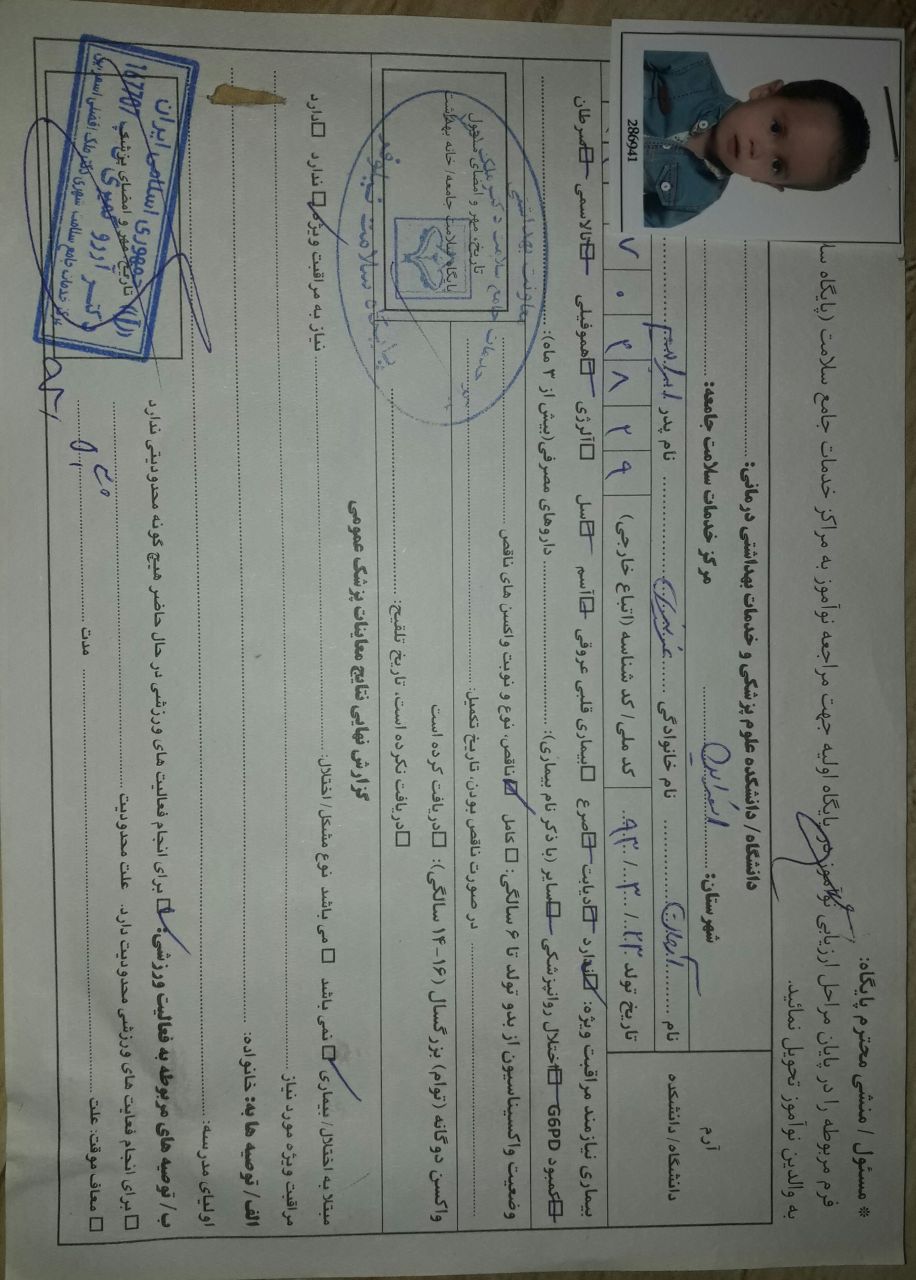 * مسئول / منشی محترم پایگاه:
فرم مربوطه را در پایان مراحل ارزیابی نوآموز در پایگاه اولیه جهت مراجعه نوآموز به مراکز خدمات جامع سلامت (پایگاه
به والدین نوآموز تحویل نمائید.
آرم
دانشگاه/ دانشکده
دانشگاه/ دانشکده علوم پزشکی و خدمات بهداشتی درمانی:
شهرستان: اسفراین مرکز خدمات سلامت جامعه:
نام نام خانوادگی نام پدر
تاریخ تولد ۹۳ / ۳ / ۲۳ کد ملی/ کد شناسه (اتباع خارجی)
۷ ۰ ۲ ۸ ۲ ۹
286941
بیماری نیازمند مراقبت ویژه: ندارد دیابت صرع بیماری قلبی عروقی آسم سل آلرژی هموفیلی تالاسمی سرطان
کمبود G6PD اختلال روانپزشکی سایر (با ذکر نام بیماری): داروهای مصرفی(بیش از ۳ ماه):
وضعیت واکسیناسیون از بدو تولد تا ۶ سالگی: کامل ناقص، نوع و نوبت واکسن های ناقص
در صورت ناقص بودن، تاریخ تکمیل:
واکسن دوگانه (توام) بزرگسال (۱۶-۱۴ سالگی): دریافت کرده است
دریافت نکرده است، تاریخ تلقیح:
تاریخ، مهر و امضای مسئول
پایگاه سلامت جامعه/ خانه بهداشت
معاونت بهداشتی
گزارش نهایی نتایج معاینات پزشک عمومی
مبتلا به اختلال/ بیماری نمی باشد می باشد نوع مشکل/ اختلال: نیاز به مراقبت ویژه ندارد دارد
مراقبت ویژه مورد نیاز
الف/ توصیه ها به: خانواده:
اولیای مدرسه:
ب/ توصیه های مربوطه به فعالیت ورزشی: برای انجام فعالیت های ورزشی در حال حاضر هیچ گونه محدودیتی ندارد
برای انجام فعالیت های ورزشی محدودیت دارد. علت محدودیت
معاف موقت: علت مدت
تاریخ، مهر و امضای پزشک
جمهوری اسلامی ایران